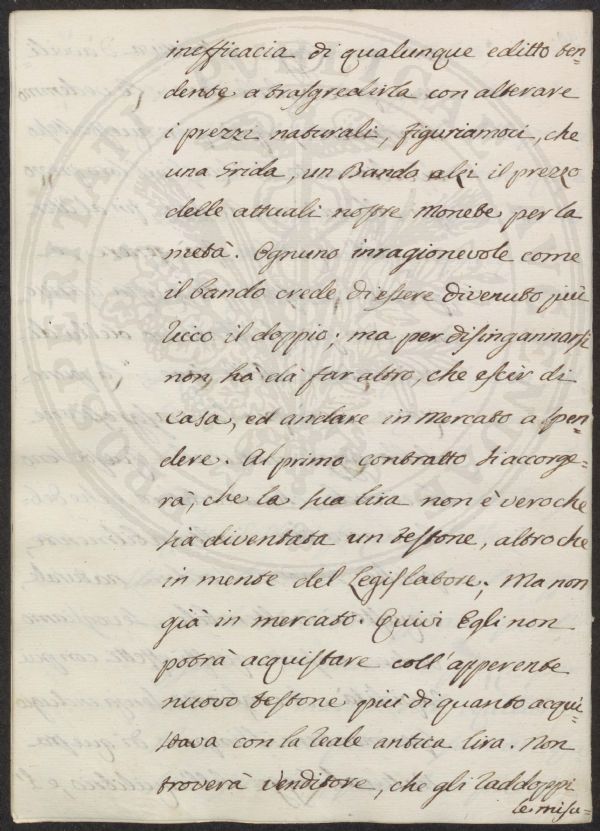 inefficacia di qualunque editto ten=
dente a trasgredirla con alterare
i prezzi naturali, figuriamoci, che
una Grida, un Bando alzi il prezzo
delle attuali nostre Monete per la
metà. Ognuno inragionevole come
il bando crede di essere divenuto più
ricco il doppio; ma per disingannarsi
non hà dà far altro, che escir di
Casa, ed andare in Mercato a spen=
dere. Al primo contratto s'accorge=
rà, che la sua lira non è vero che
sia diventata un testone, altro che
in mente del Legislatore; Ma non
già in mercato. Quivi Egli non
potrà acquistare coll'apperente
nuovo testone più di quanto acqui=
stava con la reale antica lira. Non
troverà venditore, che gli raddoppi
le misu=